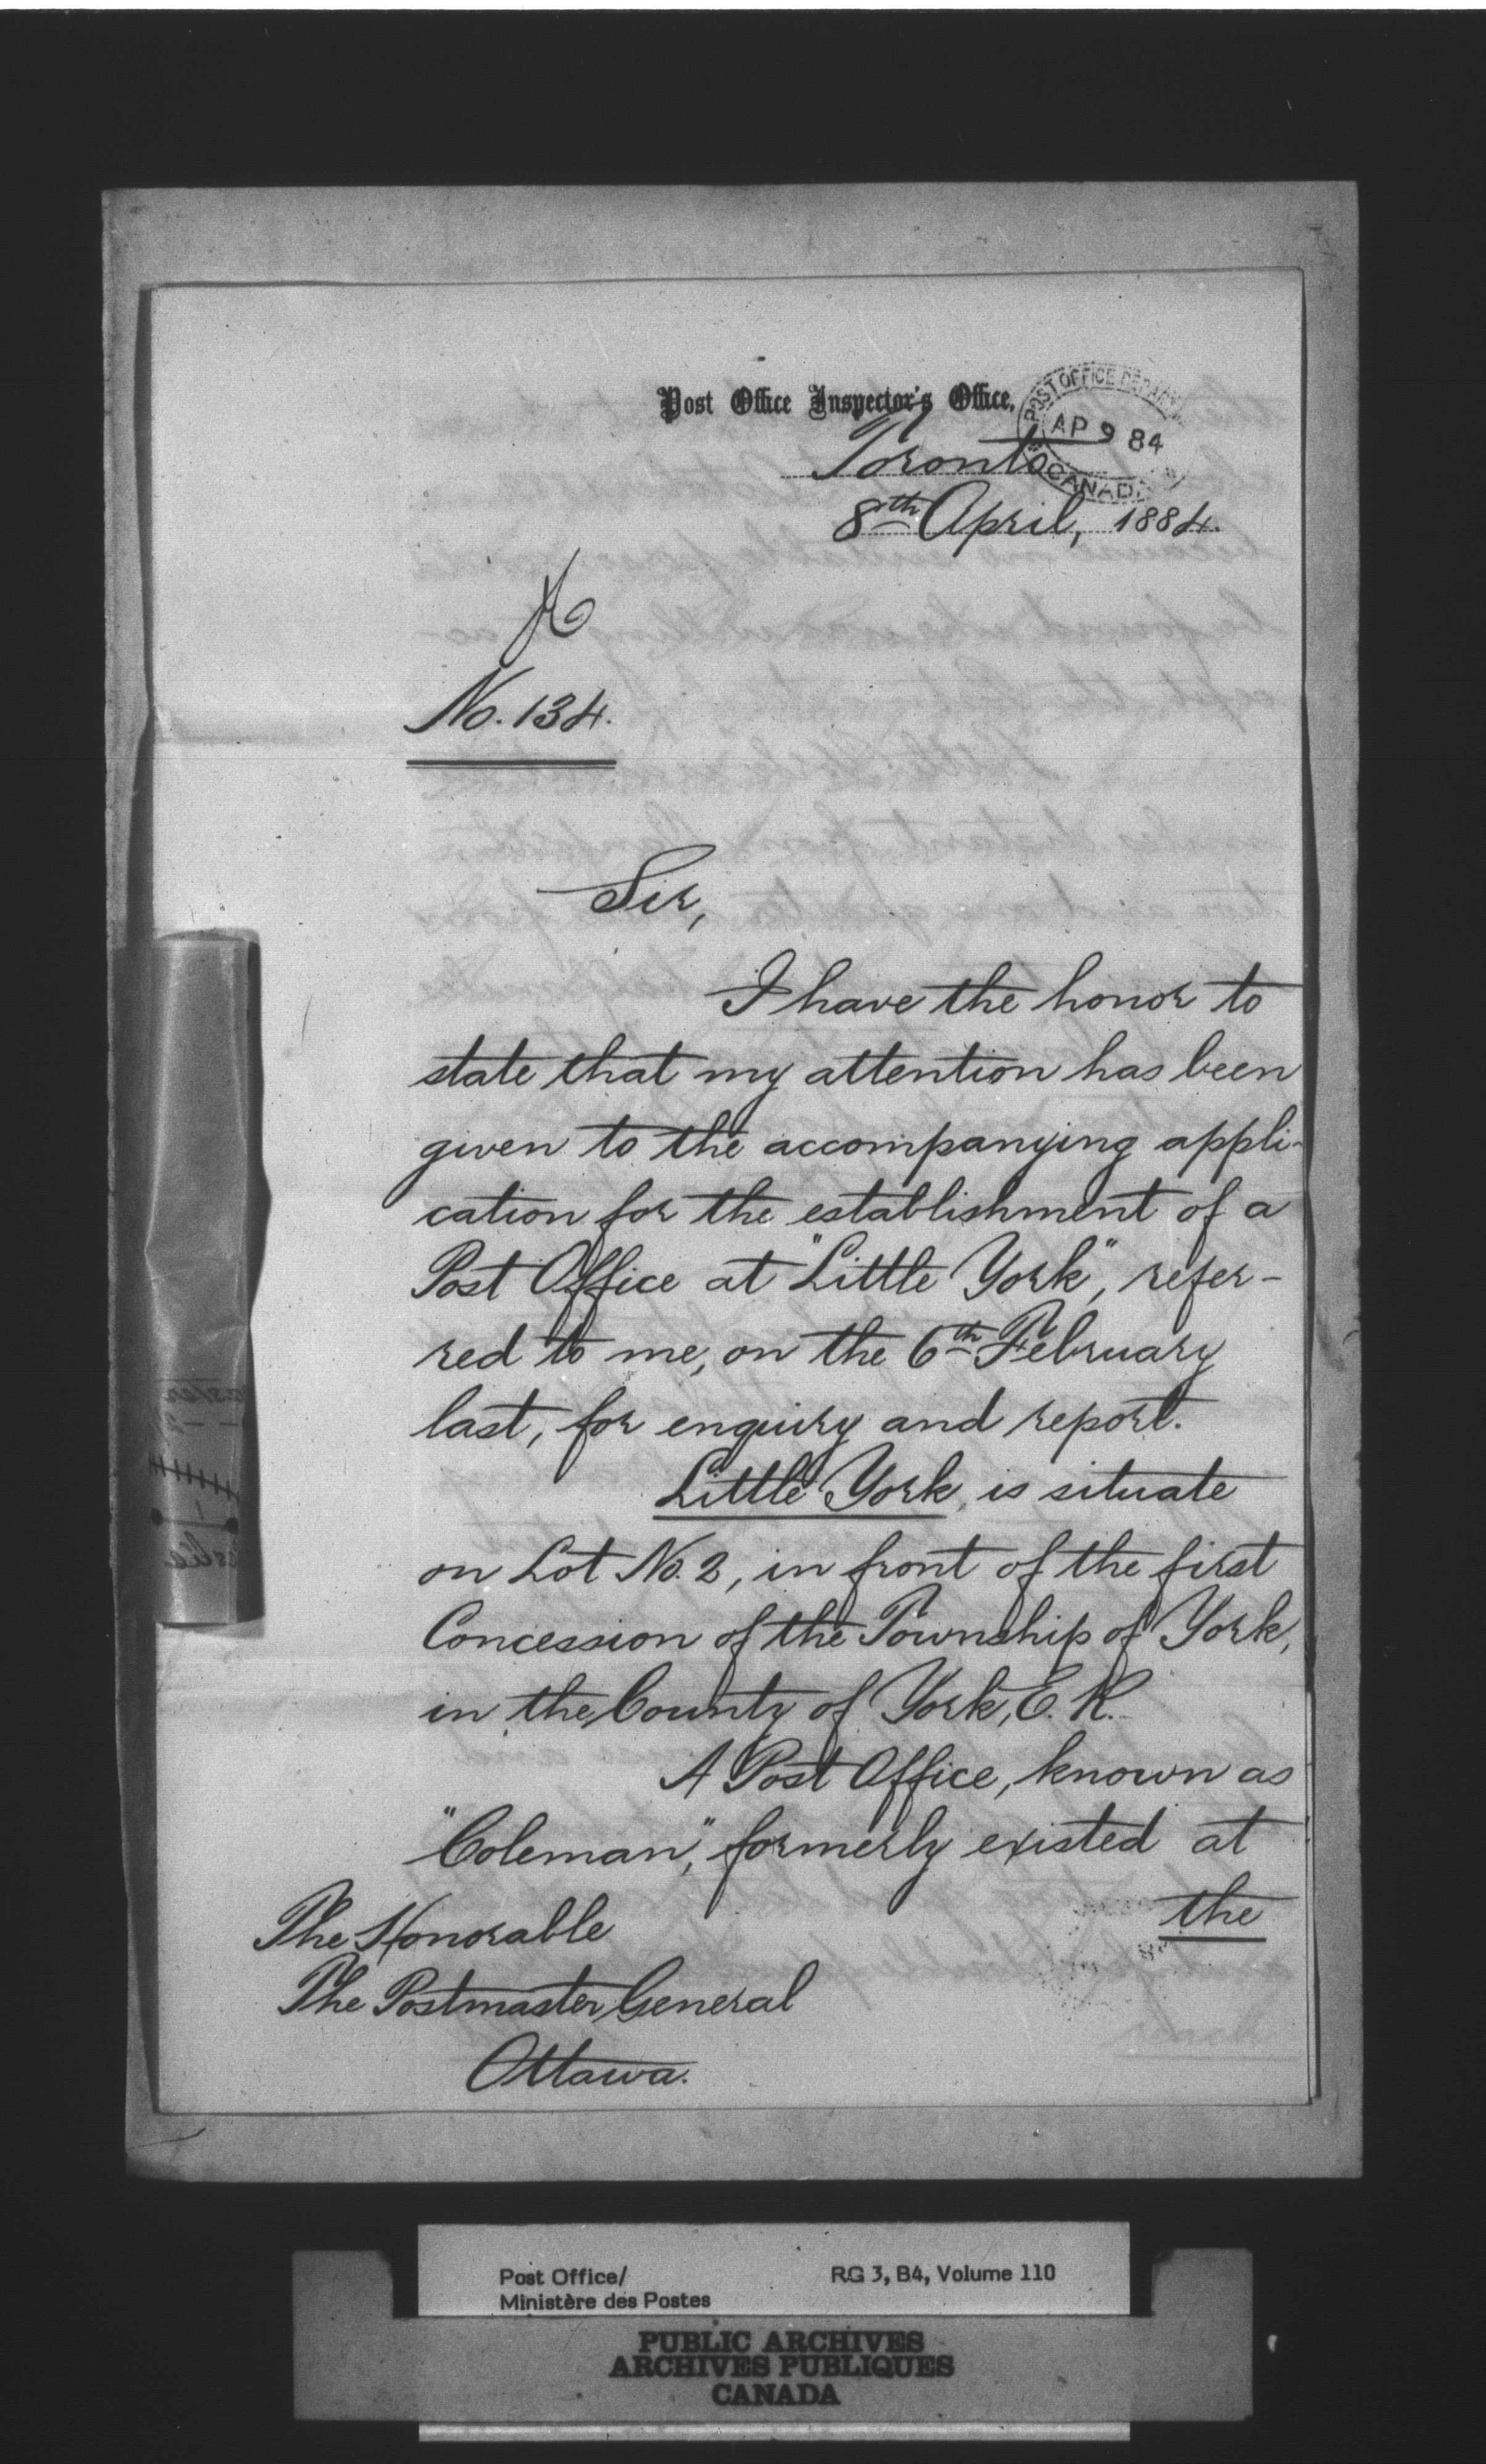 Post Office Inspector's Office,
POST OFFICE DEPART
AP 9 84
CANADA
Toronto
8th April, 1884.
No. 134.
Sir,
I have the honor to
state that my attention has been
given to the accompanying appli-
cation for the establishment of a
Post Office at "Little York", refer-
red to me, on the 6th February
last, for enquiry and report.
Little York, is situate
on Lot No. 2, in front of the first
Concession of the Township of York,
in the County of York, E. R.
A Post Office, known as
"Coleman", formerly existed at
the
The Honorable
The Postmaster General
Ottawa.
Post Office/
Ministère des Postes
RG 3, B4, Volume 110
PUBLIC ARCHIVES
ARCHIVES PUBLIQUES
CANADA